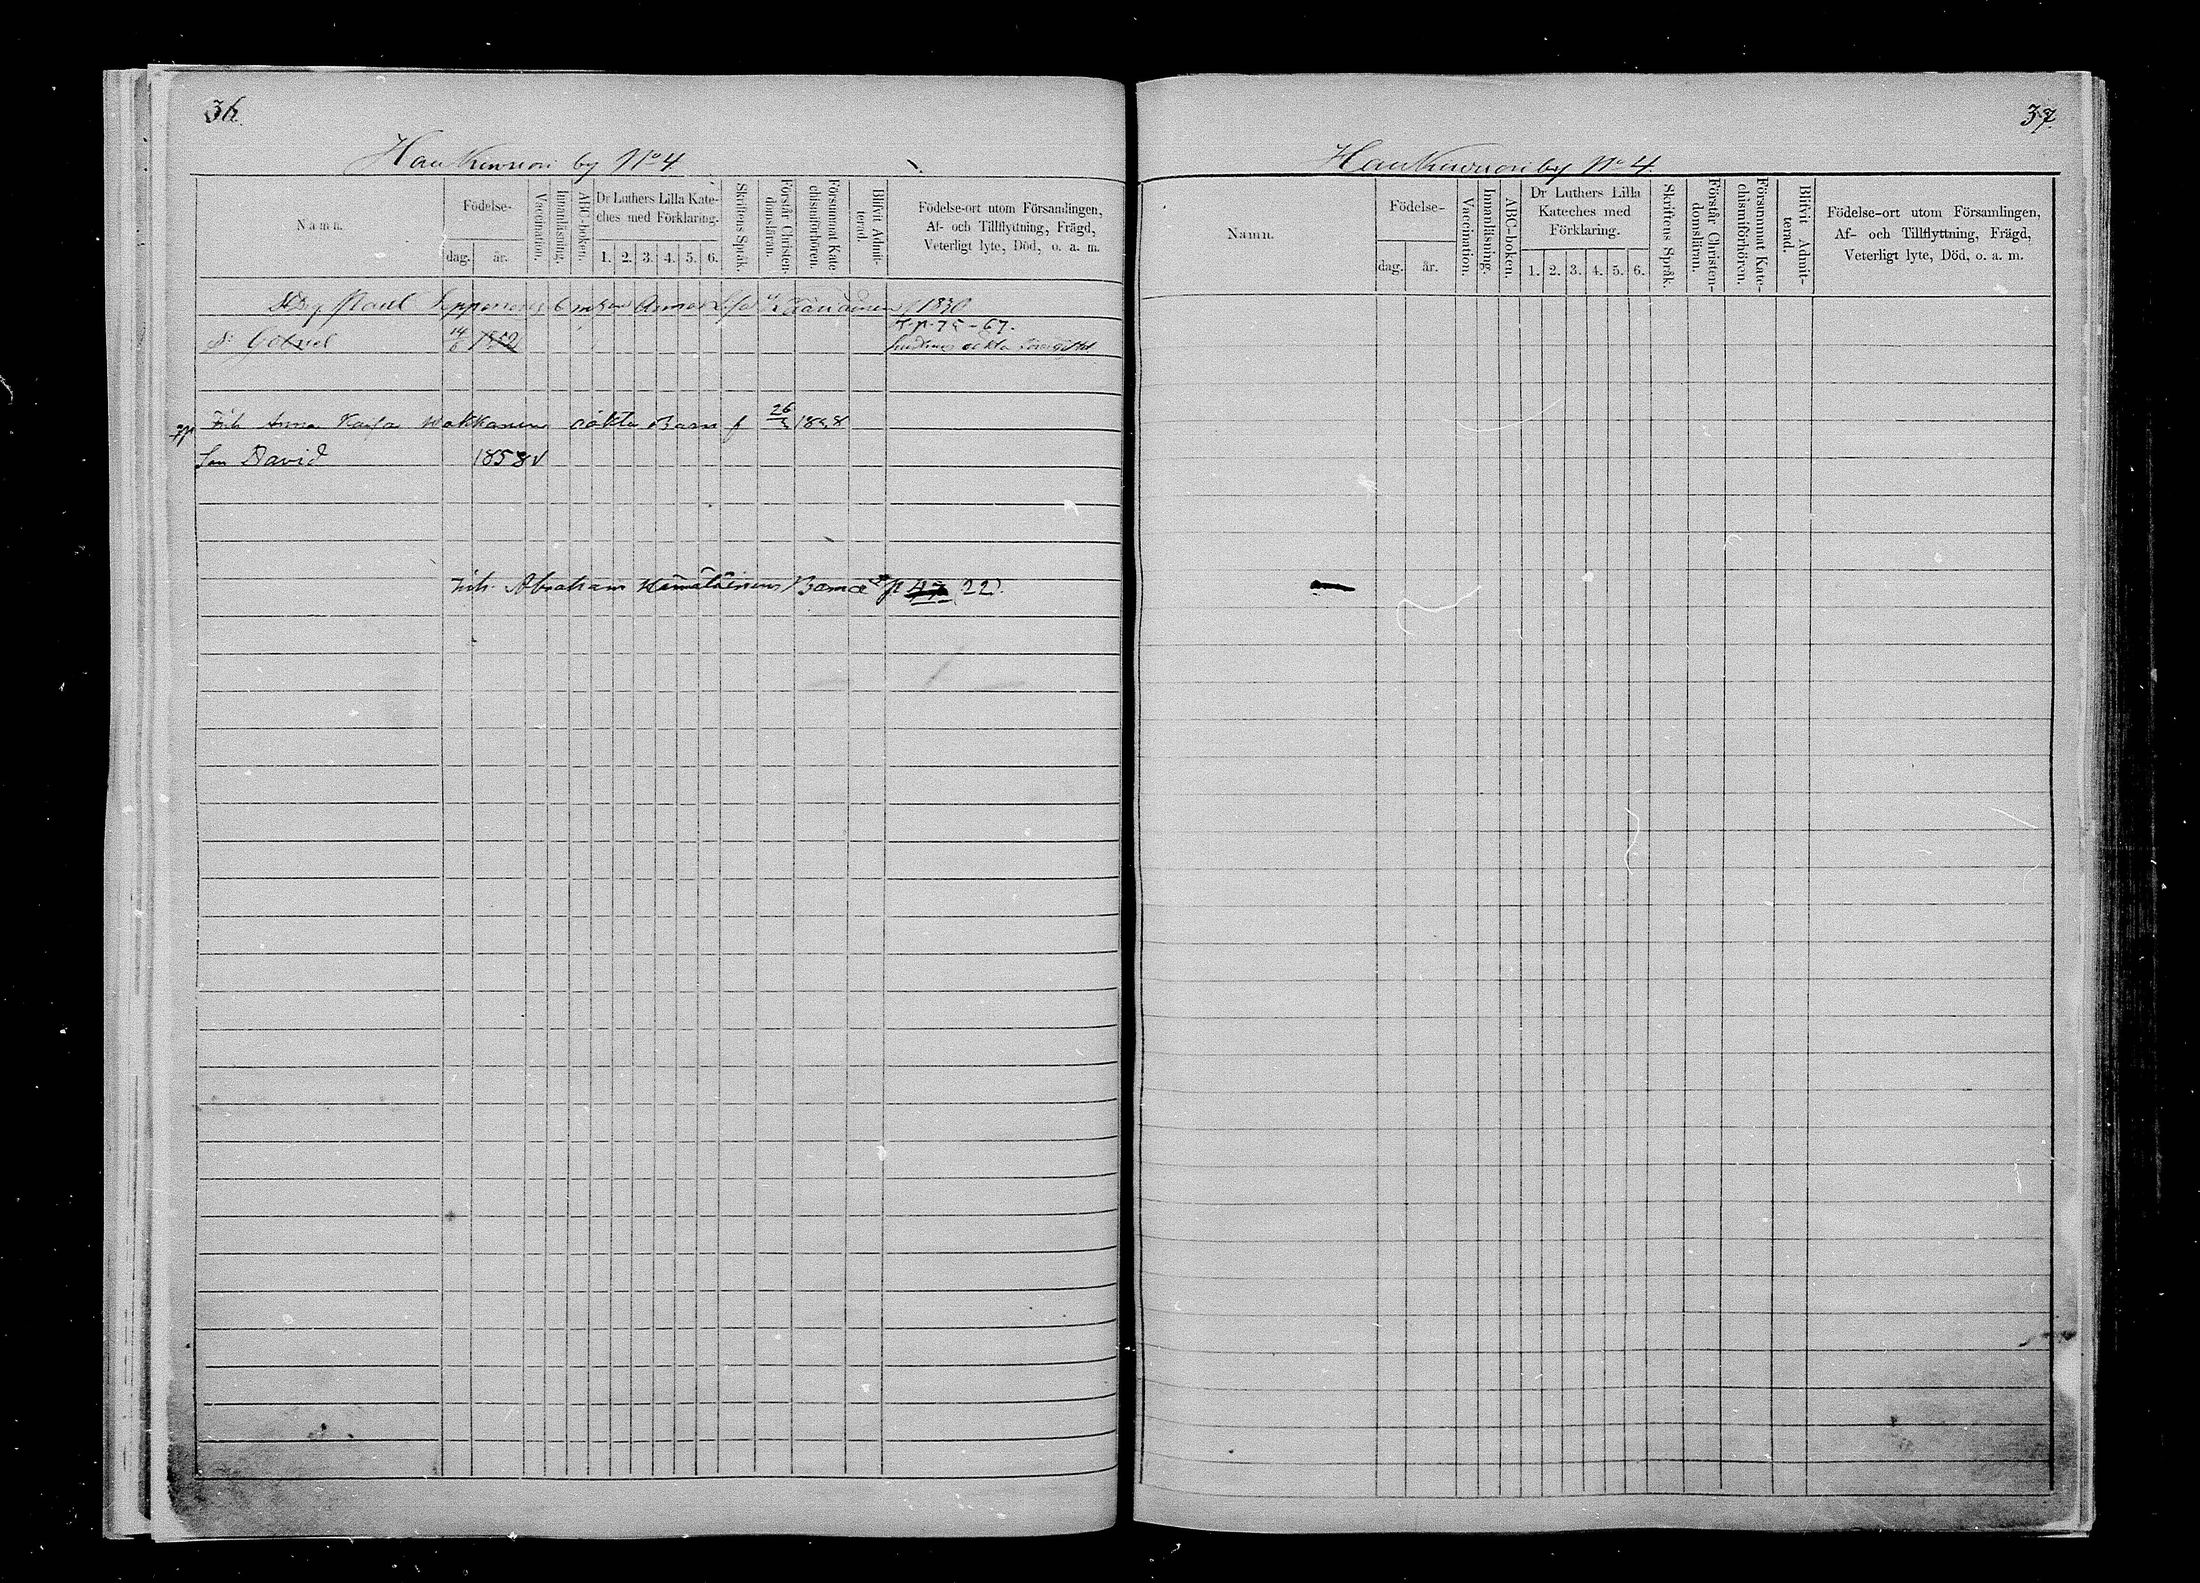 36.
Haukivuori by No 4
Namn.
Födelse-
dag.
år.
Vaccination.
Innanläsning.
ABC-boken.
Dr Luthers Lilla Kate-
ches med Förklaring.
1. 2. 3. 4. 5. 6.
Skriftens Språk.
Förstår Christen-
domsläran.
Försummat Kate
chismiförhören.
Blifvit Admit-
terad.
Födelse-ort utom Församlingen,
Af- och Tillflyttning, Frägd,
Veterligt lyte, Död, o. a. m.
Paul Lepponens Enkan Anna Hämäläinen f 1830
p. 75-67.
S. Gabriel 14/6 1852
Inh Anna Kaisa Wokkanens oäkta Barn f 26/5 1858
Son David 1858 v
Inh. Abraham Hämäläinens Barn p 47 22.
37
Haukivuori by No 4.
Namn.
Födelse-
dag.
år.
Vaccination.
Innanläsning.
ABC-boken.
Dr Luthers Lilla
Kateches med
Förklaring.
1. 2. 3. 4. 5. 6.
Skriftens Språk.
Förstår Christen-
domsläran.
Försummat Kate-
chismiförhören.
Blifvit Admit-
terad.
Födelse-ort utom Församlingen,
Af- och Tillflyttning, Frägd,
Veterligt lyte, Död, o. a. m.